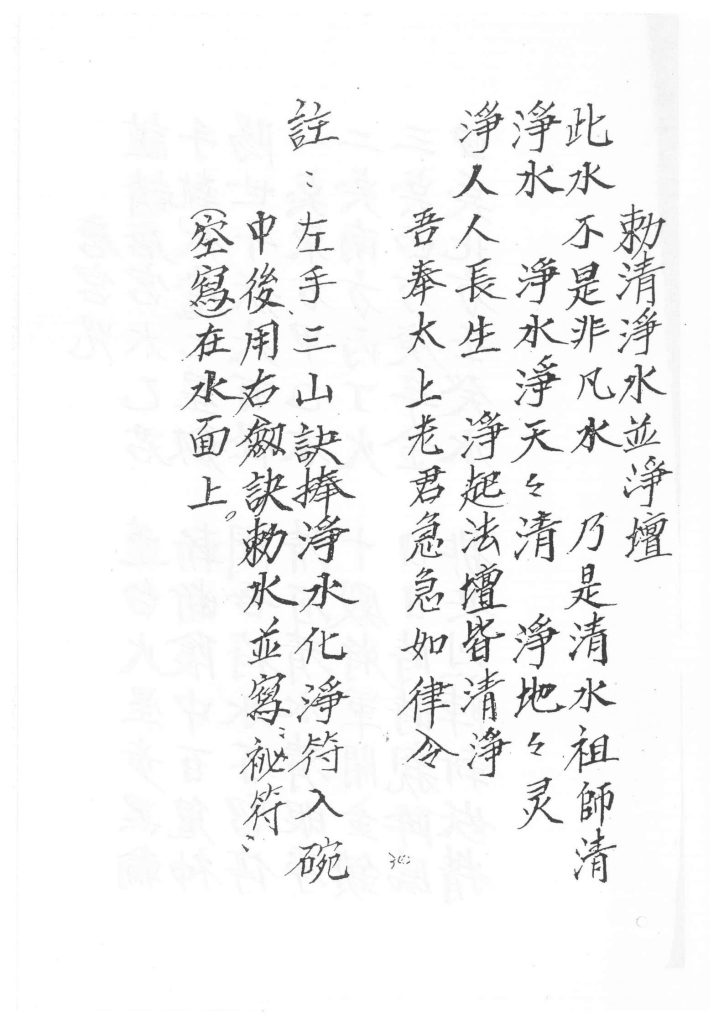 勅清淨水並淨壇
此水不是非凡水 乃是清水祖師清
淨水 淨水淨天々清 淨地々灵
淨人人長生 淨起法壇皆清淨
吾奉太上老君急急如律令
註：左手三山訣捧淨水化淨符入碗
中後用右劔訣勅水並寫祕符
（空寫）在水面上。